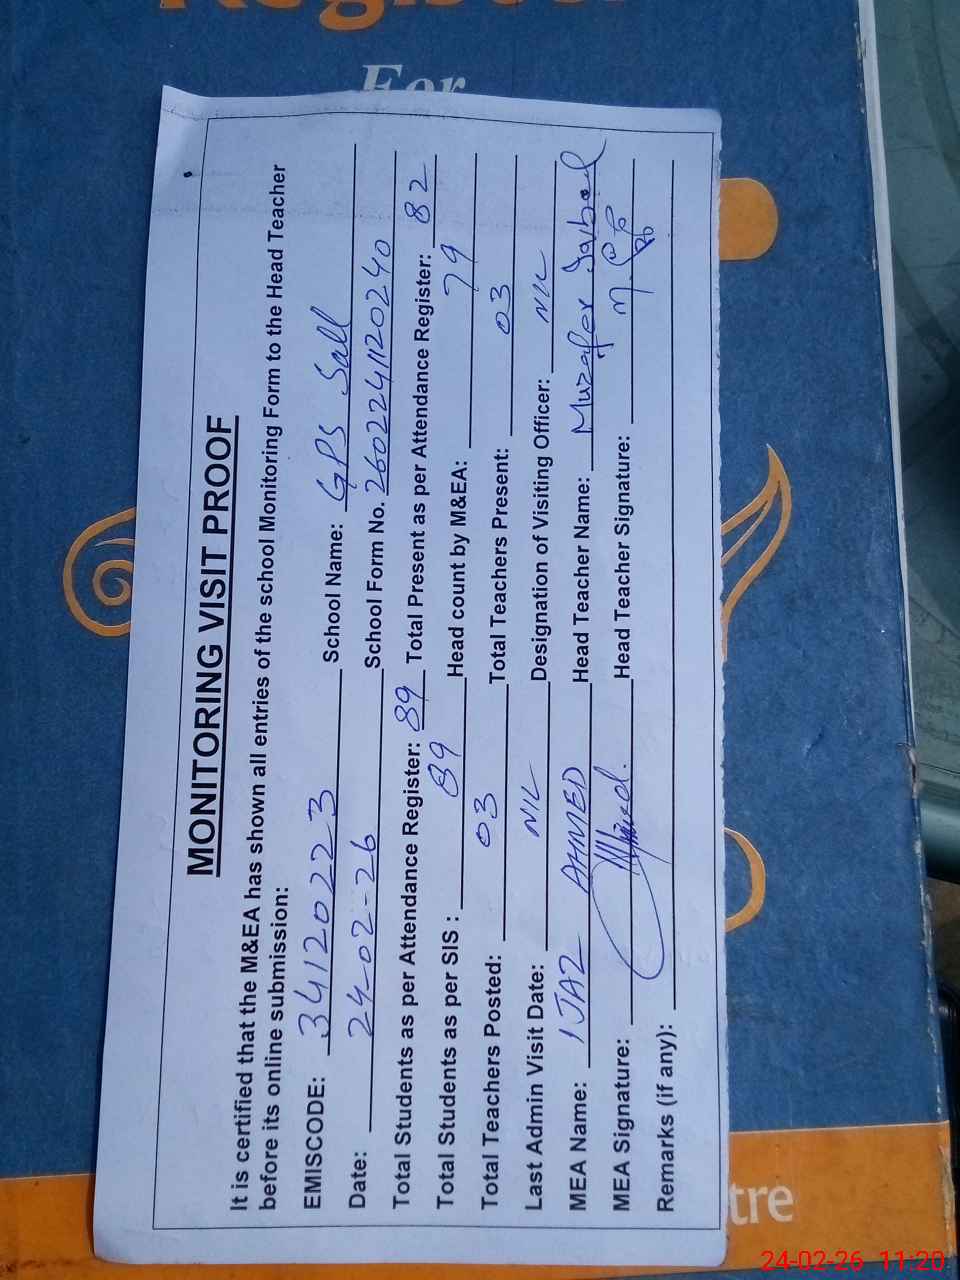 Register
For
MONITORING VISIT PROOF
It is certified that the M&EA has shown all entries of the school Monitoring Form to the Head Teacher
before its online submission:
EMISCODE: 34120223 School Name: GPS Sall
Date: 24-02-26 School Form No. 2602241120240
Total Students as per Attendance Register: 89 Total Present as per Attendance Register: 82
Total Students as per SIS : 89 Head count by M&EA: 79
Total Teachers Posted: 03 Total Teachers Present: 03
Last Admin Visit Date: NIL Designation of Visiting Officer: NIL
MEA Name: IJAZ AHMED Head Teacher Name: Muzafer Iqbal
MEA Signature: Head Teacher Signature:
Remarks (if any):
tre
24-02-26 11:20